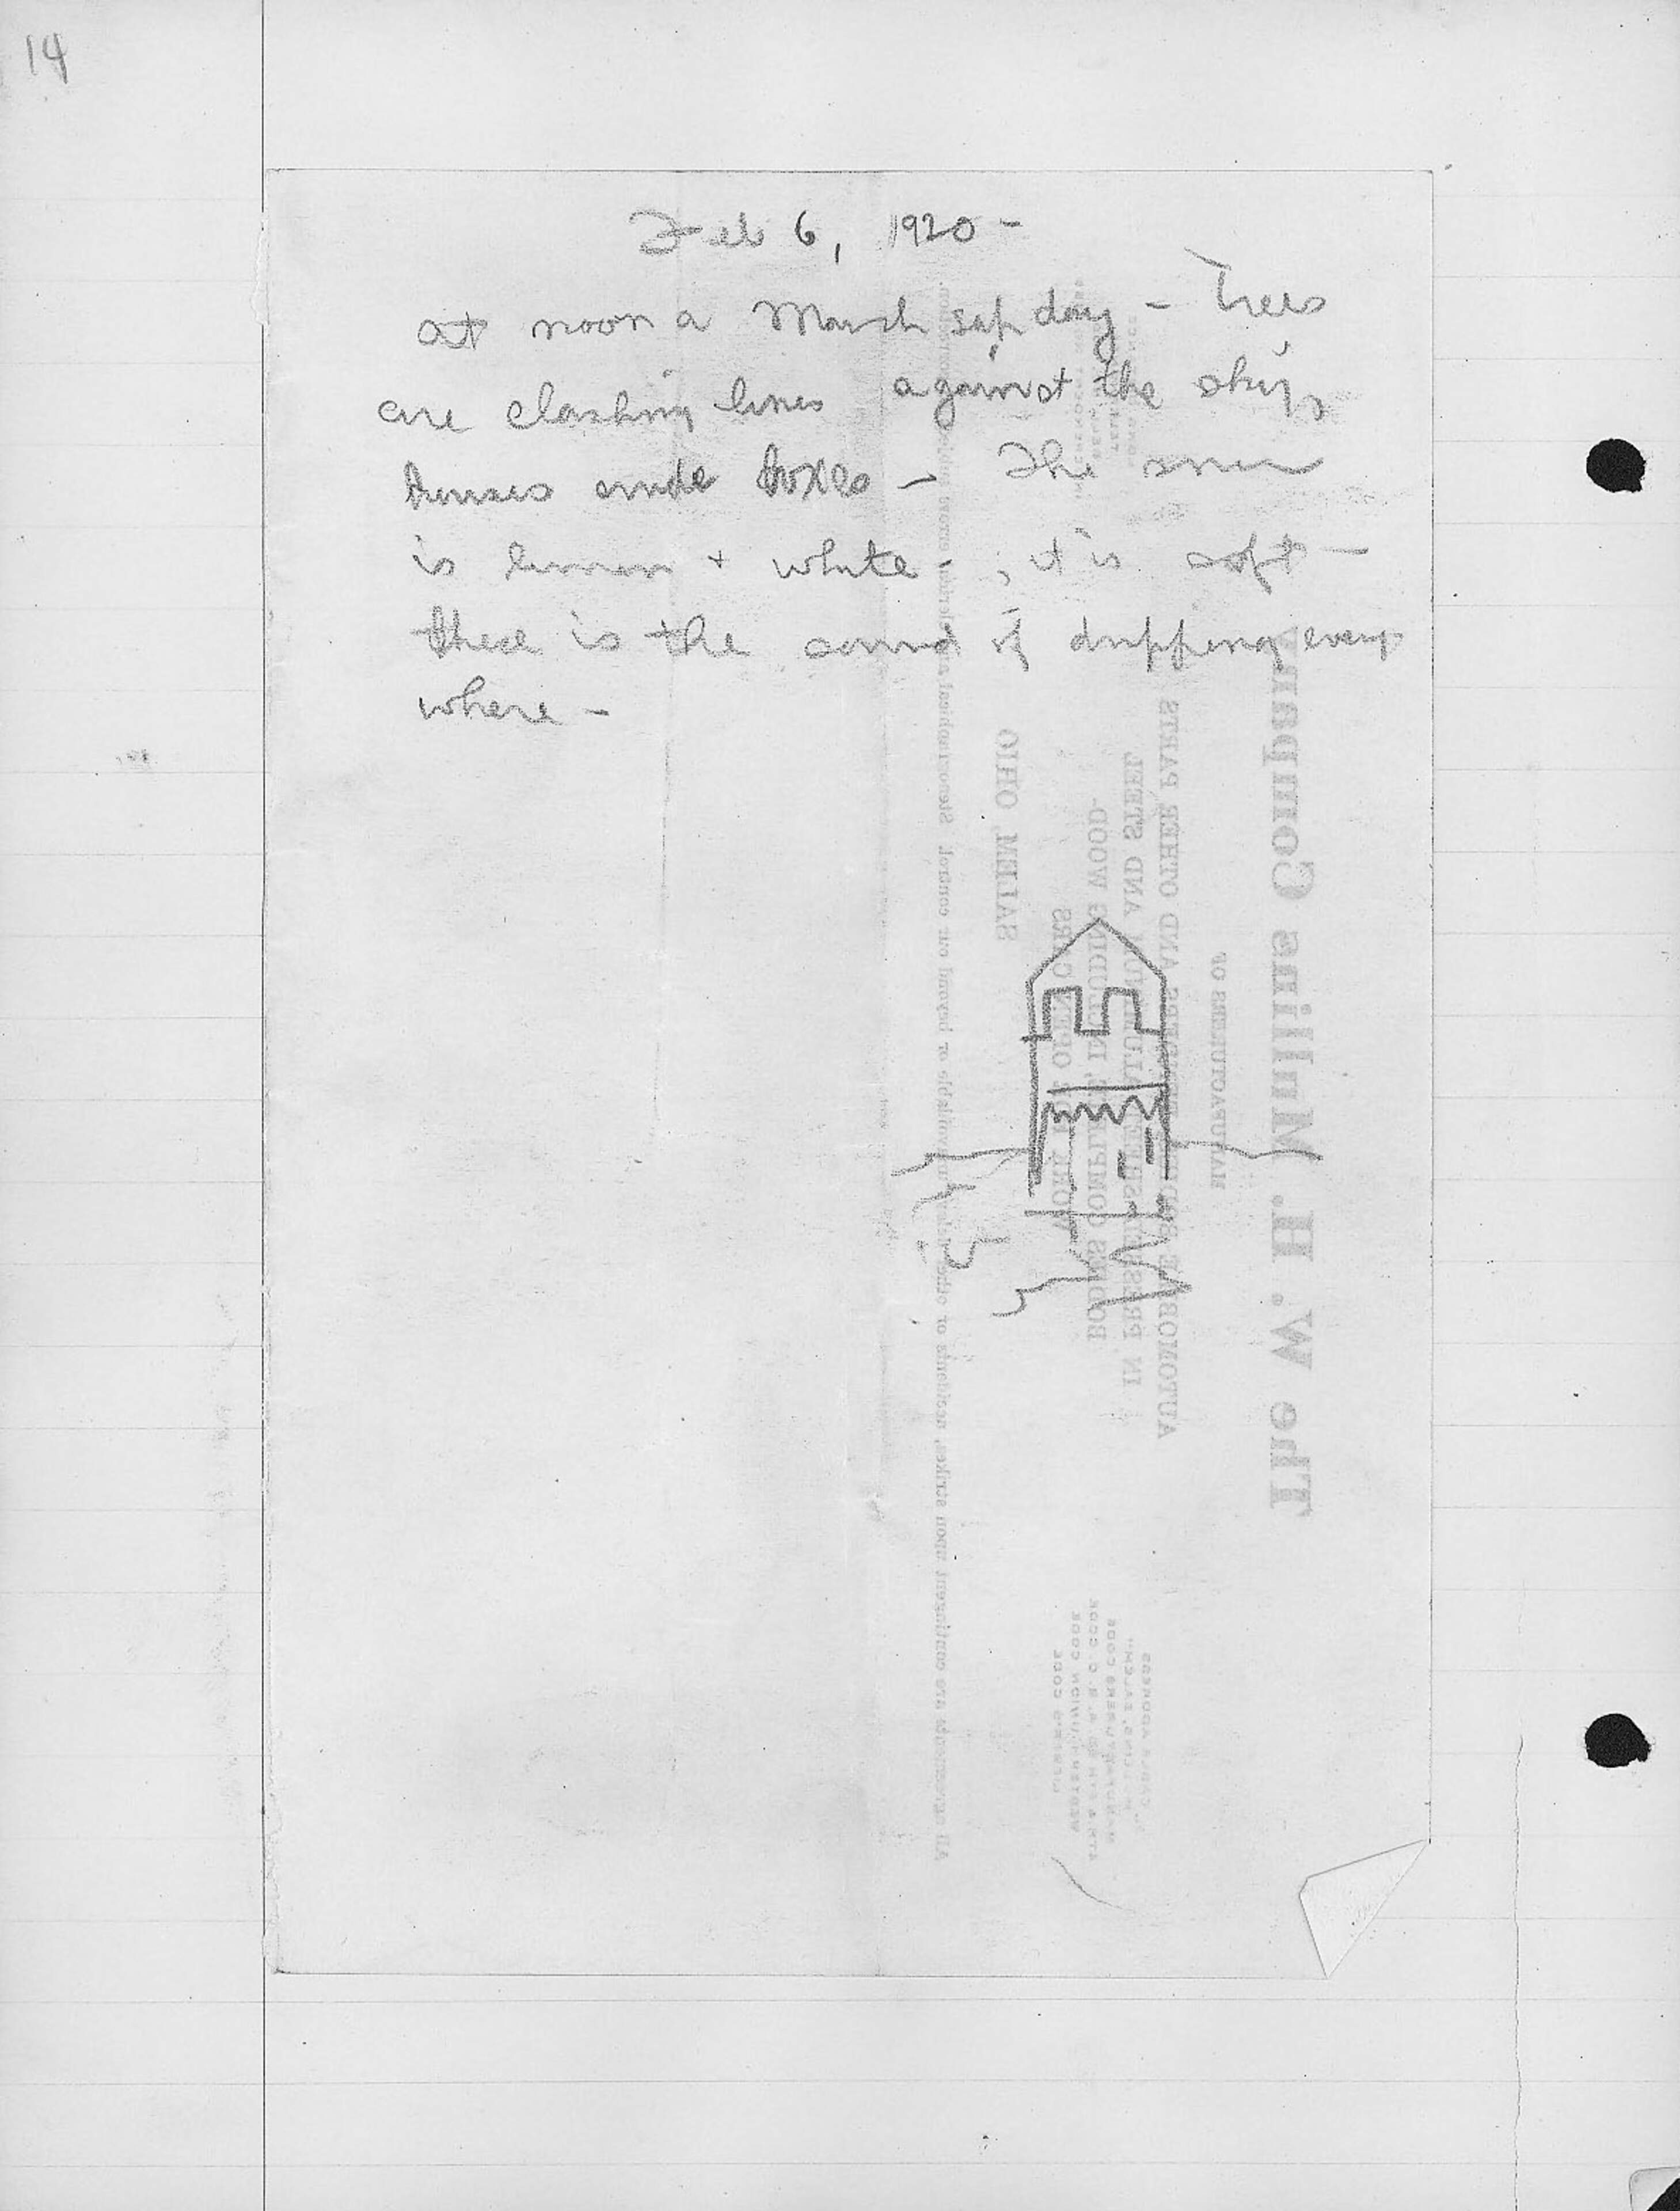 14
Feb 6, 1920 -
at noon a March sap day - Trees
are clashing lines against the sky,
houses crude boxes - The snow
is brown + white - ; it is soft -
there is the sound of dripping every
where -
The W. H. Mullins Company
MANUFACTURERS OF
AUTOMOBILE BODIES, FENDERS AND OTHER PARTS
IN PRESSED ALUMINUM AND STEEL
BODIES COMPLETE, INCLUDING WOOD-
WORK FOR OPEN CARS
SALEM, OHIO
CABLE ADDRESS
MANUFACTURERS CODE
WESTERN UNION CODE
All agreements are contingent upon strikes, accidents or other delays unavoidable or beyond our control.